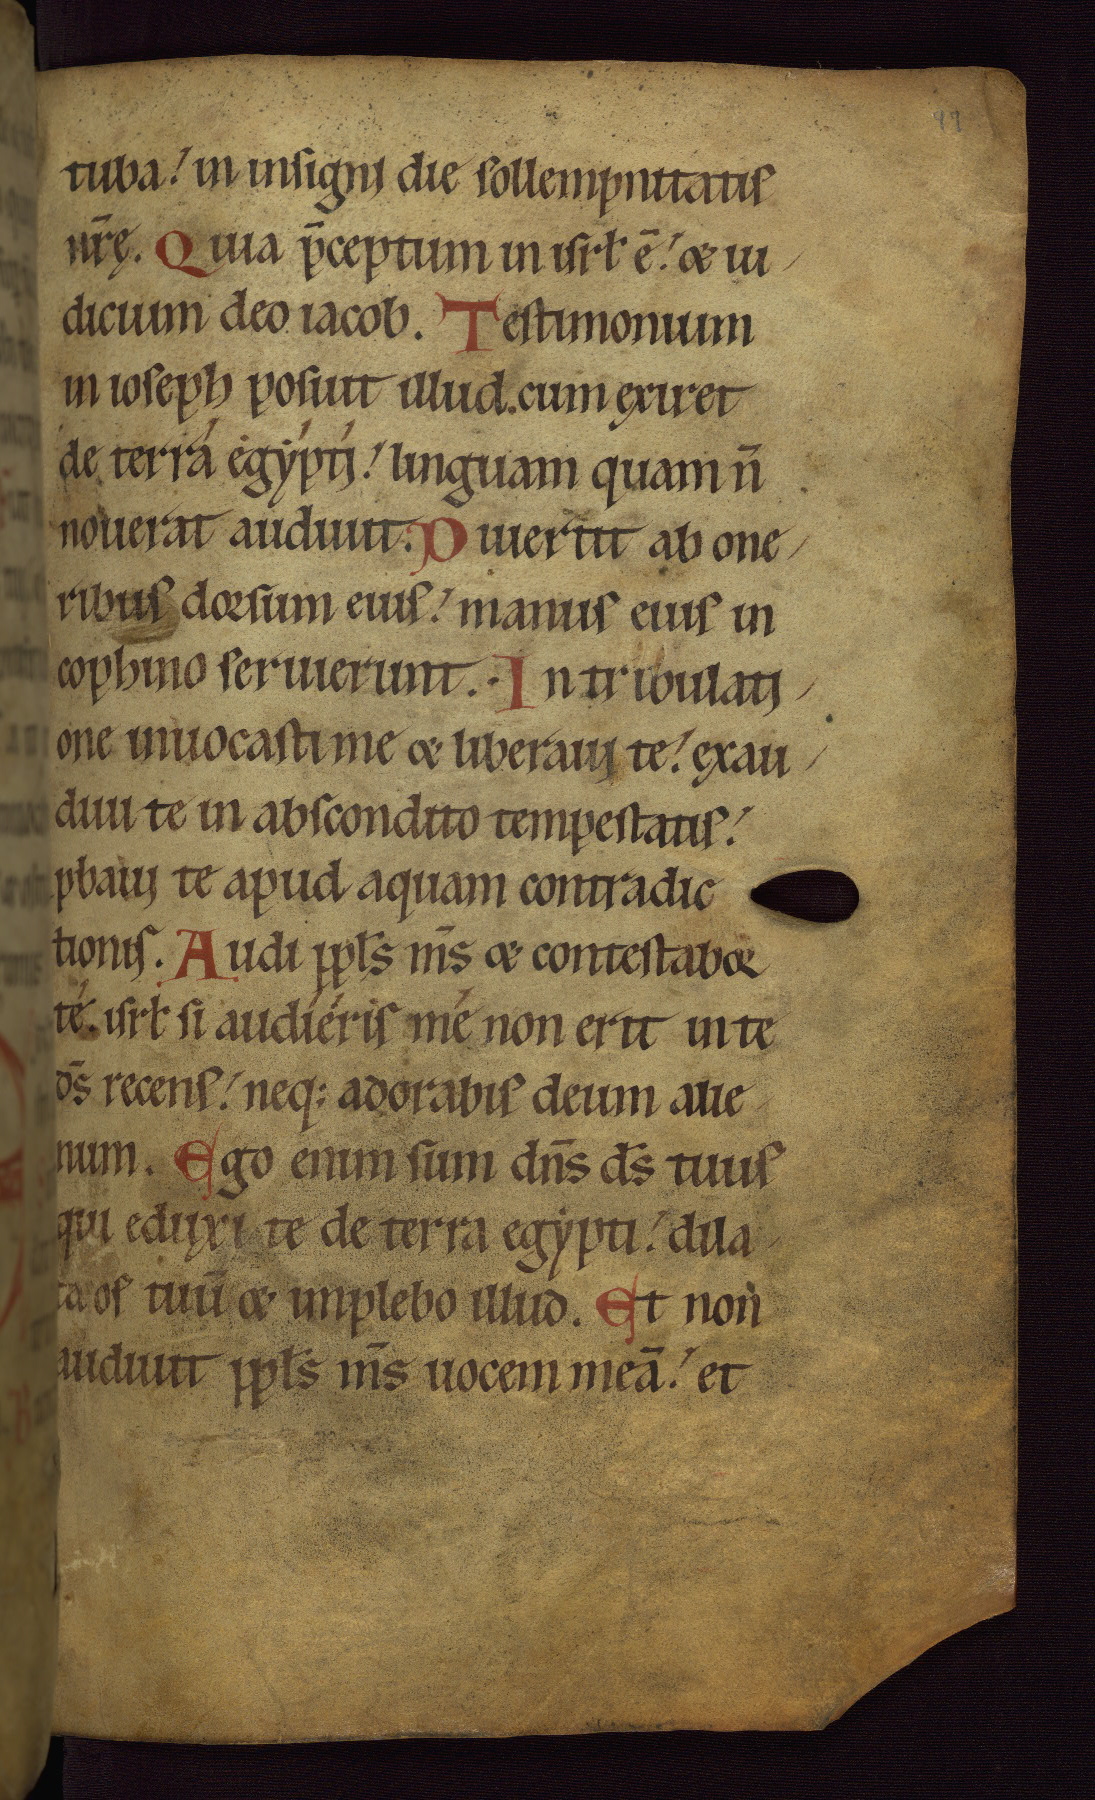 tuba! in insigni die sollempnitatis
nr̄ę. Quia p̄ceptum in isrł ē! & iu
dicium deo iacob. Testimonium
in ioseph posuit illud. cum exiret
de terra egẏpti! linguam quam n̄
nouerat audiuit. Diuertit ab one
ribus dorsum eius! manus eius in
cophino seruierunt. In tribulati
one inuocasti me & liberaui te! exau
diui te in abscondito tempestatis!
pbaui te apud aquam contradic
tionis. Audi ppłs m̄s & contestabor
te. isrł si audieris me non erit in te
ds̄ recens! neq: adorabis deum alie
num. Ego enim sum dn̄s ds̄ tuus
qui eduxi te de terra egẏpti! dila
ta os tuū & implebo illud. Et non
audiuit ppłs m̄s uocem meā! et